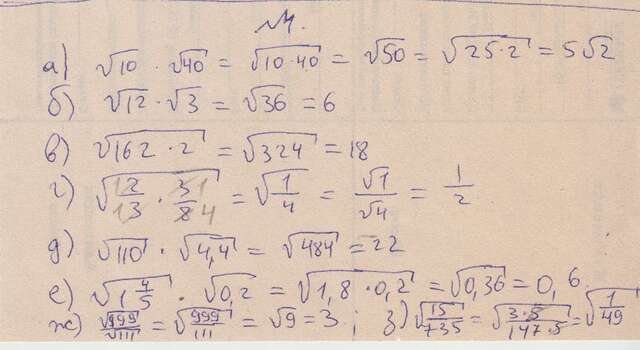 м.
а) √10 · √40 = √10·40 = √50 = √25·2 = 5√2
б) √12 · √3 = √36 = 6
в) √162 · 2 = √324 = 18
г) √12/13 · 31/84 = √1/4 = √1/√4 = 1/2
д) √110 · √4,4 = √484 = 22
е) √1 4/5 · √0,2 = √1,8 · 0,2 = √0,36 = 0,6
ж) √999/√111 = √999/111 = √9 = 3 ; з) √15/735 = √3·5/147·5 = √1/49